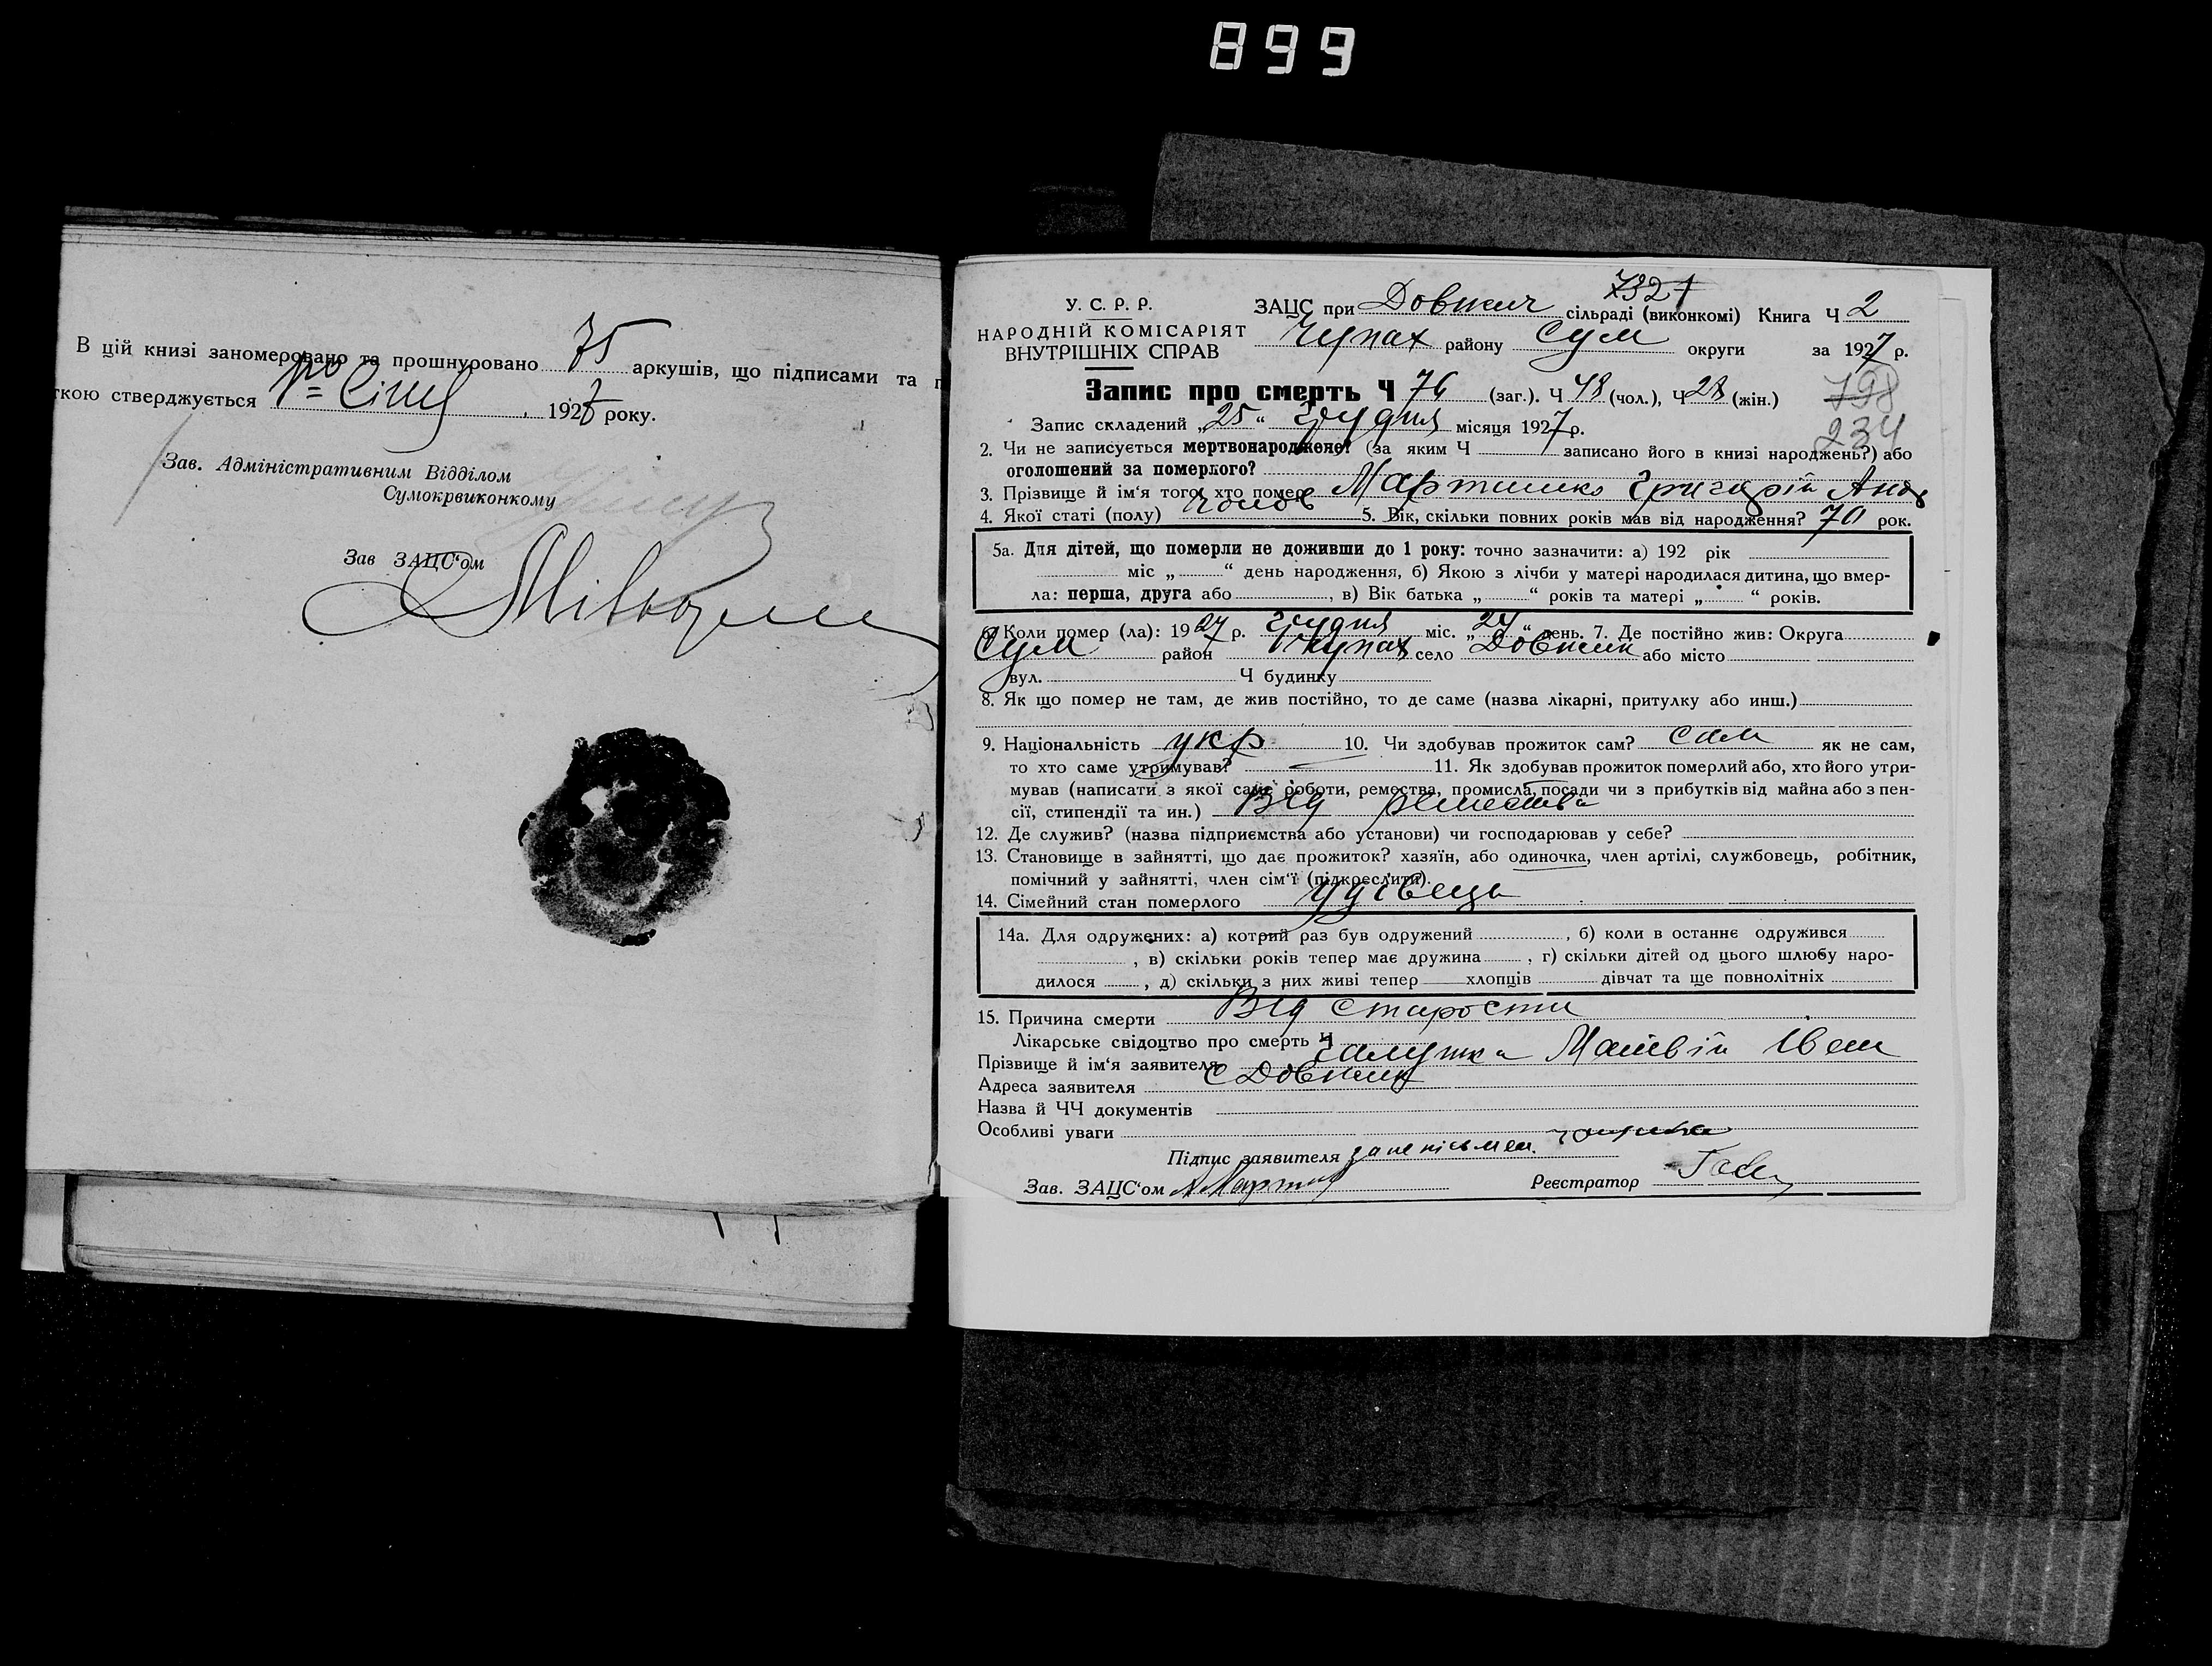 899
В цій книзі заномеровано та прошнуровано 75 аркушів, що підписами та п
ткою стверджується 1927 року.
Зав. Адміністративним Відділом
Сумокрвиконкому
Зав ЗАЦС‘ом
У. С. Р. Р.
НАРОДНІЙ КОМІСАРІЯТ
ВНУТРІШНІХ СПРАВ
7321
ЗАЦС при Довжич сільраді (виконкомі) Книга Ч 2
Чупах району Сум округи за 1927 р.
Запис про смерть Ч 76 (заг.). Ч 48 (чол.), Ч 28 (жін.)
798
234
Запис складений „25“ Грудня місяця 1927 р.
2. Чи не записується мертвонароджене? (за яким Ч записано його в книзі народжень?) або
оголошений за померлого?
3. Прізвище й ім‘я того, хто помер Мартиенко Григорій Анд
4. Якої статі (полу) чолов 5. Вік, скільки повних років мав від народження? 70 рок.
5а. Для дітей, що померли не доживши до 1 року: точно зазначити: а) 192 рік
міс „ “ день народження, б) Якою з лічби у матері народилася дитина, що вмер-
ла: перша, друга або , в) Вік батька „ “ років та матері „ “ років.
6. Коли помер (ла): 1927 р. Грудня міс. „24“ день. 7. Де постійно жив: Округа
Сум район Чупах село Довжик або місто
вул. Ч будинку
8. Як що помер не там, де жив постійно, то де саме (назва лікарні, притулку або инш.)
9. Національність укр 10. Чи здобував прожиток сам? Сам як не сам,
то хто саме утримував? 11. Як здобував прожиток померлий або, хто його утри-
мував (написати з якої саме роботи, ремества, промисла, посади чи з прибутків від майна або з пен-
сії, стипендії та ин.) Від ремества
12. Де служив? (назва підприємства або установи) чи господарював у себе?
13. Становище в зайнятті, що дає прожиток? хазяїн, або одиночка, член артілі, службовець, робітник,
помічний у зайнятті, член сім‘ї (підкреслити).
14. Сімейний стан померлого удівець
14а. Для одружених: а) котрий раз був одружений , б) коли в останнє одружився
, в) скільки років тепер має дружина , г) скільки дітей од цього шлюбу наро-
дилося , д) скільки з них живі тепер хлопців дівчат та ще повнолітніх
15. Причина смерти Від старости
Лікарське свідоцтво про смерть Ч
Прізвище й ім‘я заявителя Галушка Матвій Іван
Адреса заявителя С Довжик
Назва й ЧЧ документів
Особливі уваги
Підпис заявителя за непісьмен.
Зав. ЗАЦС‘ом Реєстратор